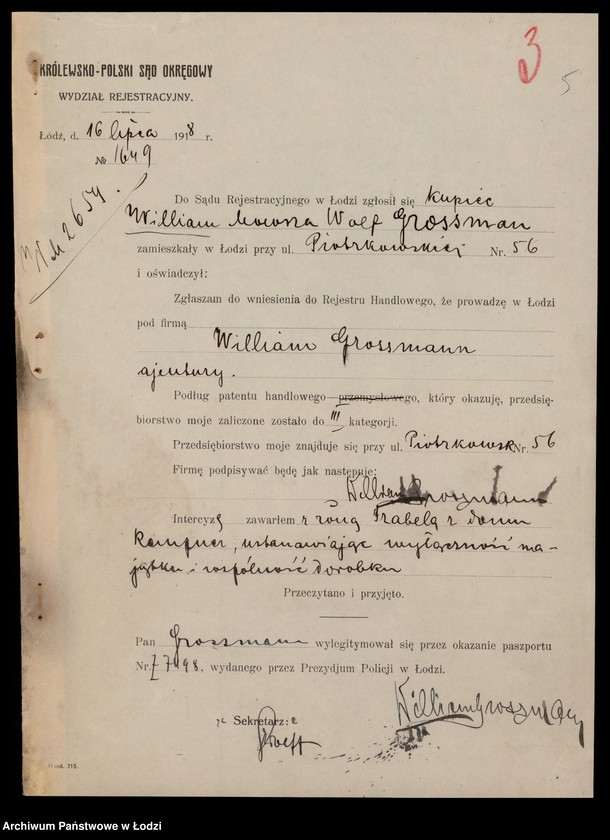 3
5
KRÓLEWSKO-POLSKI SĄD OKRĘGOWY
WYDZIAŁ REJESTRACYJNY.
Łódź, d. 16 lipca 1918 r.
№ 1649
2659
Do Sądu Rejestracyjnego w Łodzi zgłosił się kupiec
William Mowsza Wolf Grossman
zamieszkały w Łodzi przy ul. Piotrkowskiej Nr. 56
i oświadczył:
Zgłaszam do wniesienia do Rejestru Handlowego, że prowadzę w Łodzi
pod firmą
William Grossmann
ajentury.
Podług patentu handlowego przemysłowego, który okazuję, przedsię-
biorstwo moje zaliczone zostało do III kategorji.
Przedsiębiorstwo moje znajduje się przy ul. Piotrkowsk Nr. 56
Firmę podpisywać będę jak następuje:
William Groszmann
Intercyzę zawarłem z żoną Izabelą z domu
Kempner, ustanawiając wyłączność ma-
jątku i wspólność dorobku
Przeczytano i przyjęto.
Pan Grossmann wylegitymował się przez okazanie paszportu
Nr. , wydanego przez Prezydjum Policji w Łodzi.
William Groszmann
Sekretarz:
715.
Archiwum Państwowe w Łodzi